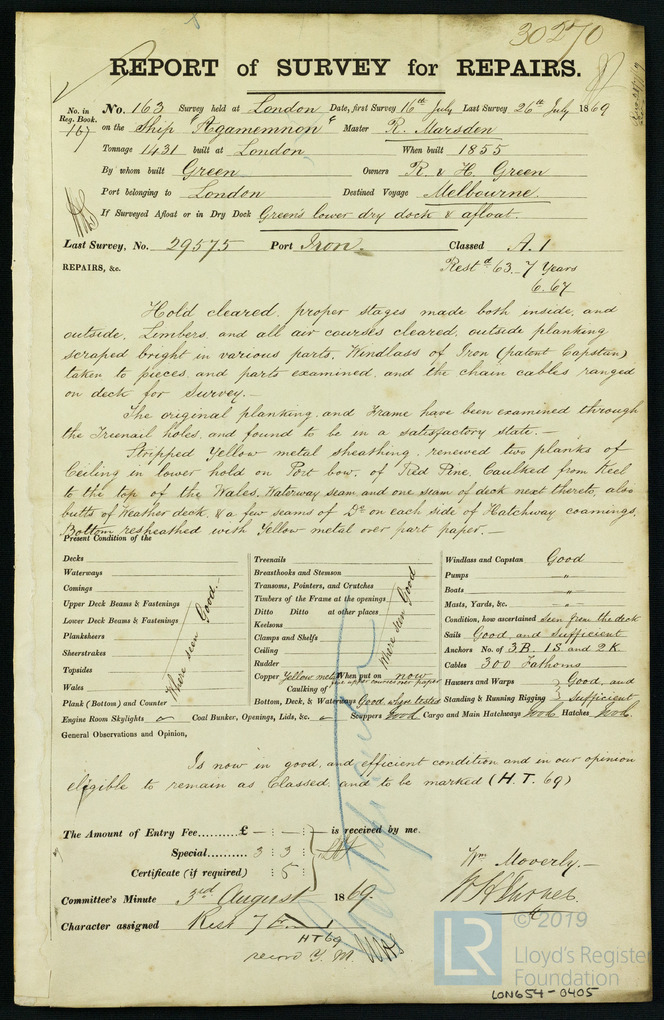 30270
REPORT of SURVEY for REPAIRS.
No. in Reg. Book. 167
No. 163 Survey held at London Date, first Survey 16th July Last Survey 26th July 1869
on the Ship "Agamemnon" Master R. Marsden
Tonnage 1431 built at London When built 1855
By whom built Green Owners R. & H. Green
Port belonging to London Destined Voyage Melbourne.
If Surveyed Afloat or in Dry Dock Green's lower dry dock & afloat.
Last Survey, No. 29575 Port Iron. Classed A.1
REPAIRS, &c. Restd 63_7 Years
6.67
Hold cleared, proper stages made both inside, and
outside, Limbers, and all air courses cleared, outside planking
scraped bright in various parts, Windlass of Iron (patent Capstan)
taken to pieces, and parts examined, and the chain cables ranged
on deck for Survey.—
The original planking, and Frame have been examined through
the Treenail holes, and found to be in a satisfactory state.—
Stripped Yellow metal sheathing, renewed two planks of
Ceiling in lower hold on Port bow, of Red Pine, Caulked from Keel
to the top of the Wales, Waterway seam, and one seam of deck next thereto, also
butts of Weather deck, & a few seams of Do on each side of Hatchway coamings,
Bottom resheathed with Yellow metal over part paper.—
Present Condition of the
Decks
Waterways
Comings
Upper Deck Beams & Fastenings
Lower Deck Beams & Fastenings
Planksheers
Sheerstrakes
Topsides
Wales
Plank (Bottom) and Counter
Where seen Good.
Treenails
Breasthooks and Stemson
Transoms, Pointers, and Crutches
Timbers of the Frame at the openings
Ditto Ditto at other places
Keelsons
Clamps and Shelfs
Ceiling
Rudder
Where seen Good
Copper Yellow metal When put on now
upper courses over paper
Caulking of
Bottom, Deck, & Waterways Good when tested
Windlass and Capstan Good
Pumps "
Boats "
Masts, Yards, &c. "
Condition, how ascertained seen from the deck
Sails Good, and Sufficient
Anchors No. of 3B. 1S and 2K
Cables 300 Fathoms
Hawsers and Warps } Good, and
Standing & Running Rigging } Sufficient
Engine Room Skylights Coal Bunker, Openings, Lids, &c. Scuppers Good Cargo and Main Hatchways Good Hatches Good.
General Observations and Opinion,
Is now in good, and efficient condition and in our opinion
eligible to remain as Classed, and to be marked (H.T. 69)
The Amount of Entry Fee..........£ — : — : — is received by me.
Special.......... 3 : 3 :
Certificate (if required) : 5 :
Wm Moverly.—
Committee's Minute 3rd August 1869.
Character assigned Rest 7
HT 69
record Y. M.
© 2019
LR
Lloyd's Register
Foundation
LON654-0405